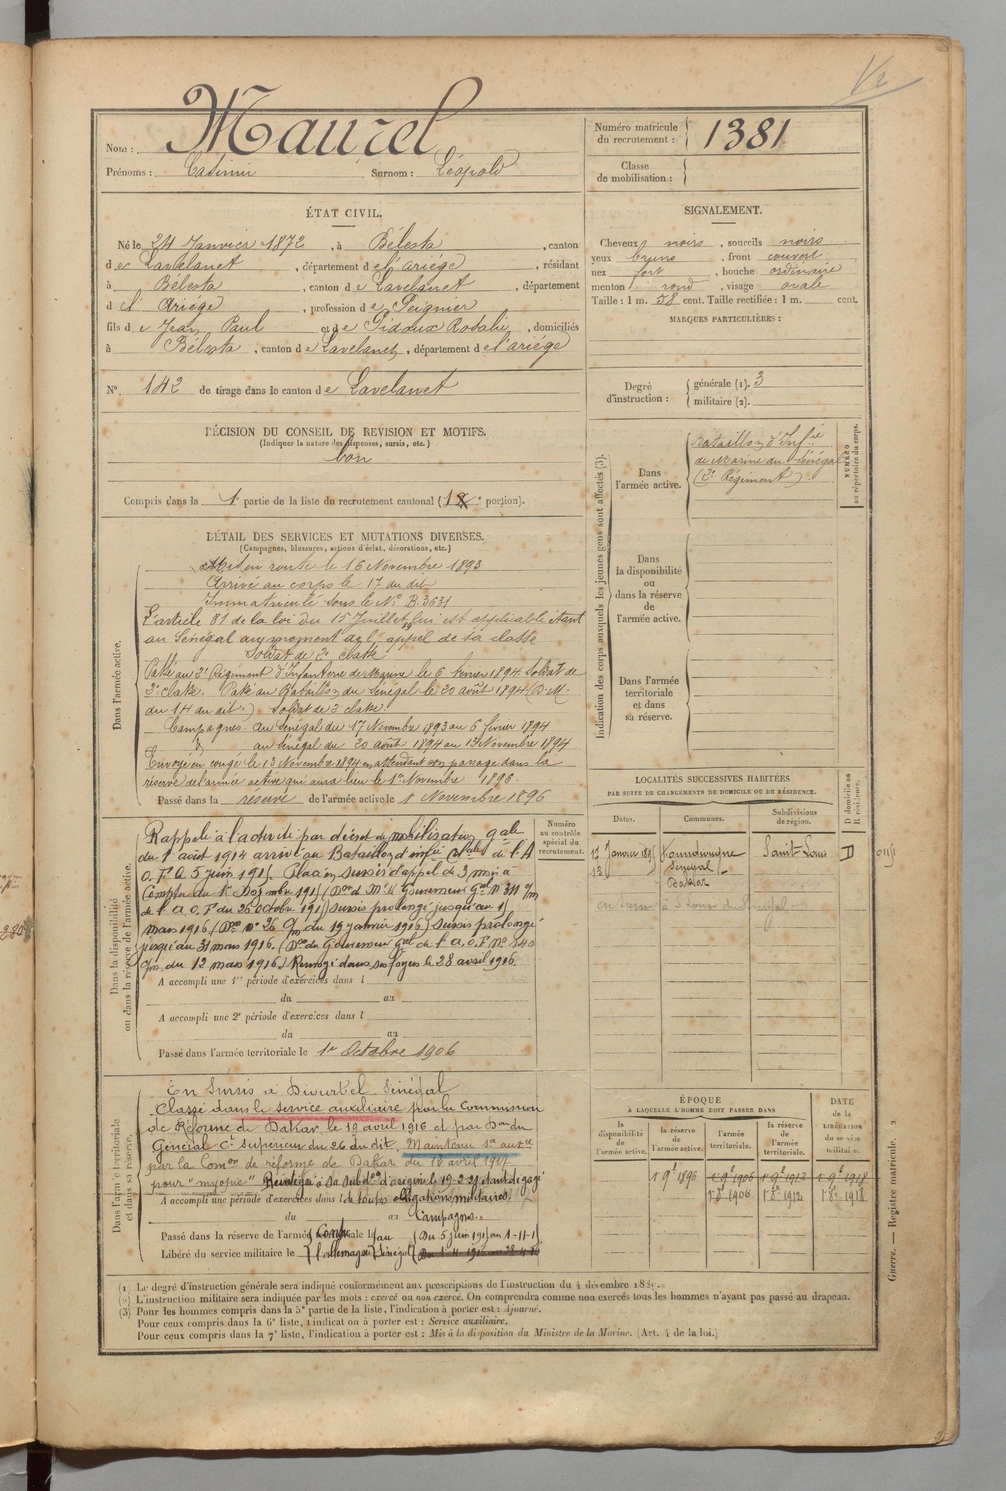 1/2
Nom : Maurel
Prénoms : Casimir Surnom : Léopold
Numéro matricule du recrutement : 1381
Classe de mobilisation :
ÉTAT CIVIL.
Né le 24 Janvier 1872, à Bélesta, canton
de Lavelanet, département de l'ariége, résidant
à Bélesta, canton de Lavelanet, département
d el' Ariége, profession de Peignier
fils de Jean Paul et de Pidoux Rosalie, domiciliés
à Bélesta, canton de Lavelanet, département de l'ariége
N° 142 de tirage dans le canton de Lavelanet
SIGNALEMENT.
Cheveux noirs, sourcils noirs
yeux bruns, front couvert
nez fort, bouche ordinaire
menton rond, visage ovale
Taille : 1 m. 58 cent. Taille rectifiée : 1 m. cent.
MARQUES PARTICULIÈRES :
Degré d'instruction : générale (1). 3
militaire (2).
DÉCISION DU CONSEIL DE REVISION ET MOTIFS.
(Indiquer la nature des dispenses, sursis, etc.)
bon
Compris dans la 1e partie de la liste du recrutement cantonal (1 e portion).
DÉTAIL DES SERVICES ET MUTATIONS DIVERSES.
(Campagnes, blessures, actions d'éclat, décorations, etc.)
Dans l'armée active.
Mis en route le 16 Novembre 1893
Arrivé au corps le 17 du dit
Immatriculé sous le N° B.3631
L'article 81 de la loi du 15 Juillet 89 lui est applicable étant
au Sénégal au moment de l'appel de sa classe
Soldat de 2e classe
Passé au 2e Régiment d'Infanterie de Marine le 6 février 1894. Soldat de
2e classe. Passé au Bataillon du Sénégal le 20 août 1894 (D.M.
du 14 au dit.) Soldat de 2e classe.
Campagnes : au Sénégal du 17 Novembre 1893 au 6 février 1894
d° au Sénégal du 20 août 1894 au 13 Novembre 1894
Envoyé en congé le 13 Novembre 1894 en attendant son passage dans la
réserve de l'armée active qui aura lieu le 1er Novembre 1896.
Passé dans la réserve de l'armée active le 1 Novembre 1896
Indication des corps auxquels les jeunes gens sont affectés (3).
Dans l'armée active.
Bataillon d'Infie
de Marine du Sénégal
(2e Régiment)
NUMÉRO au répertoire du corps.
Dans la disponibilité ou dans la réserve de l'armée active.
Dans l'armée territoriale et dans sa réserve.
LOCALITÉS SUCCESSIVES HABITÉES
PAR SUITE DE CHANGEMENTS DE DOMICILE OU DE RÉSIDENCE.
D domicile ou R résidence.
Dates. Communes. Subdivisions de région.
Sénégal
Dakar
Saint-Louis
Dans la disponibilité ou dans la réserve de l'armée active.
Numéro au contrôle spécial du recrutement.
Rappelé à l'activité par décret de mobilisation gale
du 1er août 1914 arrivé au Bataillon d'infie clale de l'A
O.F. le 5 juin 1915. Placé en sursis d'appel de 3 mois à
compter du 1er Novembre 1915 (Don de Mr le Gouverneur Gal N° 311 G/m
de l'A.O.F. du 26 octobre 1915) sursis prolongé jusqu'au 1er
mars 1916 (Don N° 26 G/m du 19 janvier 1916) sursis prolongé
jusqu'au 31 mars 1916. (Don du Gouverneur Gal de l'A.O.F. N° 140
G/m. du 12 mars 1916.) Renvoyé dans ses foyers le 28 avril 1916.
A accompli une 1re période d'exercices dans l
du au
A accompli une 2e période d'exercices dans l
du au
Passé dans l'armée territoriale le 1er Octobre 1906
Dans l'armée territoriale et dans sa réserve.
En Sursis à Diourbel Sénégal
Classé dans le service auxiliaire par la Commission
de Réforme de Dakar le 19 avril 1916 et par Don du
Général Ct Supérieur du 26 du dit. Maintenu ser auxre
par la Comon de réforme de Dakar du 18 avril 1917
pour "myopie"
A accompli une période d'exercices dans l de toutes obligations militaires.
du au Campagne.
Passé dans la réserve de l'armée territoriale le
Libéré du service militaire le
Contre l'allemagne au Sénégal Du 5 juin 1915 au 1-11-15
ÉPOQUE
À LAQUELLE L'HOMME DOIT PASSER DANS
la disponibilité de l'armée active. la réserve de l'armée active. l'armée territoriale. la réserve de l'armée territoriale.
DATE de la LIBÉRATION du service militaire.
1 9e 1896 1 9e 1906 1 9e 1912 1 9e 1918
1 8e 1906 1 8e 1912 1 8e 1918
Guerre. — Registre matricule. 2
(1) Le degré d'instruction générale sera indiqué conformément aux prescriptions de l'instruction du 4 décembre 1889.
(2) L'instruction militaire sera indiquée par les mots : exercé ou non exercé. On comprendra comme non exercés tous les hommes n'ayant pas passé au drapeau.
(3) Pour les hommes compris dans la 5e partie de la liste, l'indication à porter est : Ajourné.
Pour ceux compris dans la 6e liste, l'indication à porter est : Service auxiliaire.
Pour ceux compris dans la 7e liste, l'indication à porter est : Mis à la disposition du Ministre de la Marine. (Art. 4 de la loi.)